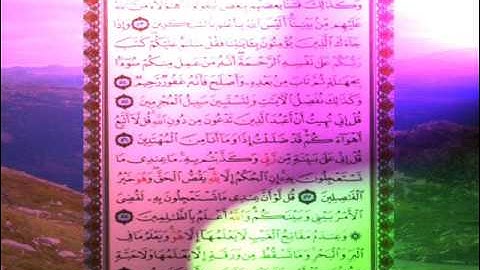 وَكَذَٰلِكَ فَتَنَّا بَعْضَهُم بِبَعْضٍ لِّيَقُولُوٓاْ أَهَٰٓؤُلَآءِ مَنَّ ٱللَّهُ
عَلَيْهِم مِّنۢ بَيْنِنَآ أَلَيْسَ ٱللَّهُ بِأَعْلَمَ بِٱلشَّٰكِرِينَ ٥٣ وَإِذَا
جَآءَكَ ٱلَّذِينَ يُؤْمِنُونَ بِـَٔايَٰتِنَا فَقُلْ سَلَٰمٌ عَلَيْكُمْ كَتَبَ
رَبُّكُمْ عَلَىٰ نَفْسِهِ ٱلرَّحْمَةَ أَنَّهُۥ مَنْ عَمِلَ مِنكُمْ سُوٓءًۢا
بِجَهَٰلَةٍ ثُمَّ تَابَ مِنۢ بَعْدِهِۦ وَأَصْلَحَ فَأَنَّهُۥ غَفُورٌ رَّحِيمٌ ٥٤
وَكَذَٰلِكَ نُفَصِّلُ ٱلْأٓيَٰتِ وَلِتَسْتَبِينَ سَبِيلُ ٱلْمُجْرِمِينَ ٥٥
قُلْ إِنِّى نُهِيتُ أَنْ أَعْبُدَ ٱلَّذِينَ تَدْعُونَ مِن دُونِ ٱللَّهِ قُل لَّآ أَتَّبِعُ
أَهْوَآءَكُمْ قَدْ ضَلَلْتُ إِذًا وَمَآ أَنَا۠ مِنَ ٱلْمُهْتَدِينَ ٥٦
قُلْ إِنِّى عَلَىٰ بَيِّنَةٍ مِّن رَّبِّى وَكَذَّبْتُم بِهِۦ مَا عِندِى مَا
تَسْتَعْجِلُونَ بِهِۦٓ إِنِ ٱلْحُكْمُ إِلَّا لِلَّهِ يَقُصُّ ٱلْحَقَّ وَهُوَ خَيْرُ
ٱلْفَٰصِلِينَ ٥٧ قُل لَّوْ أَنَّ عِندِى مَا تَسْتَعْجِلُونَ بِهِۦ لَقُضِىَ
ٱلْأَمْرُ بَيْنِى وَبَيْنَكُمْ وَٱللَّهُ أَعْلَمُ بِٱلظَّٰلِمِينَ ٥٨
وَعِندَهُۥ مَفَاتِحُ ٱلْغَيْبِ لَا يَعْلَمُهَآ إِلَّا هُوَ وَيَعْلَمُ مَا فِى
ٱلْبَرِّ وَٱلْبَحْرِ وَمَا تَسْقُطُ مِن وَرَقَةٍ إِلَّا يَعْلَمُهَا وَلَا حَبَّةٍ